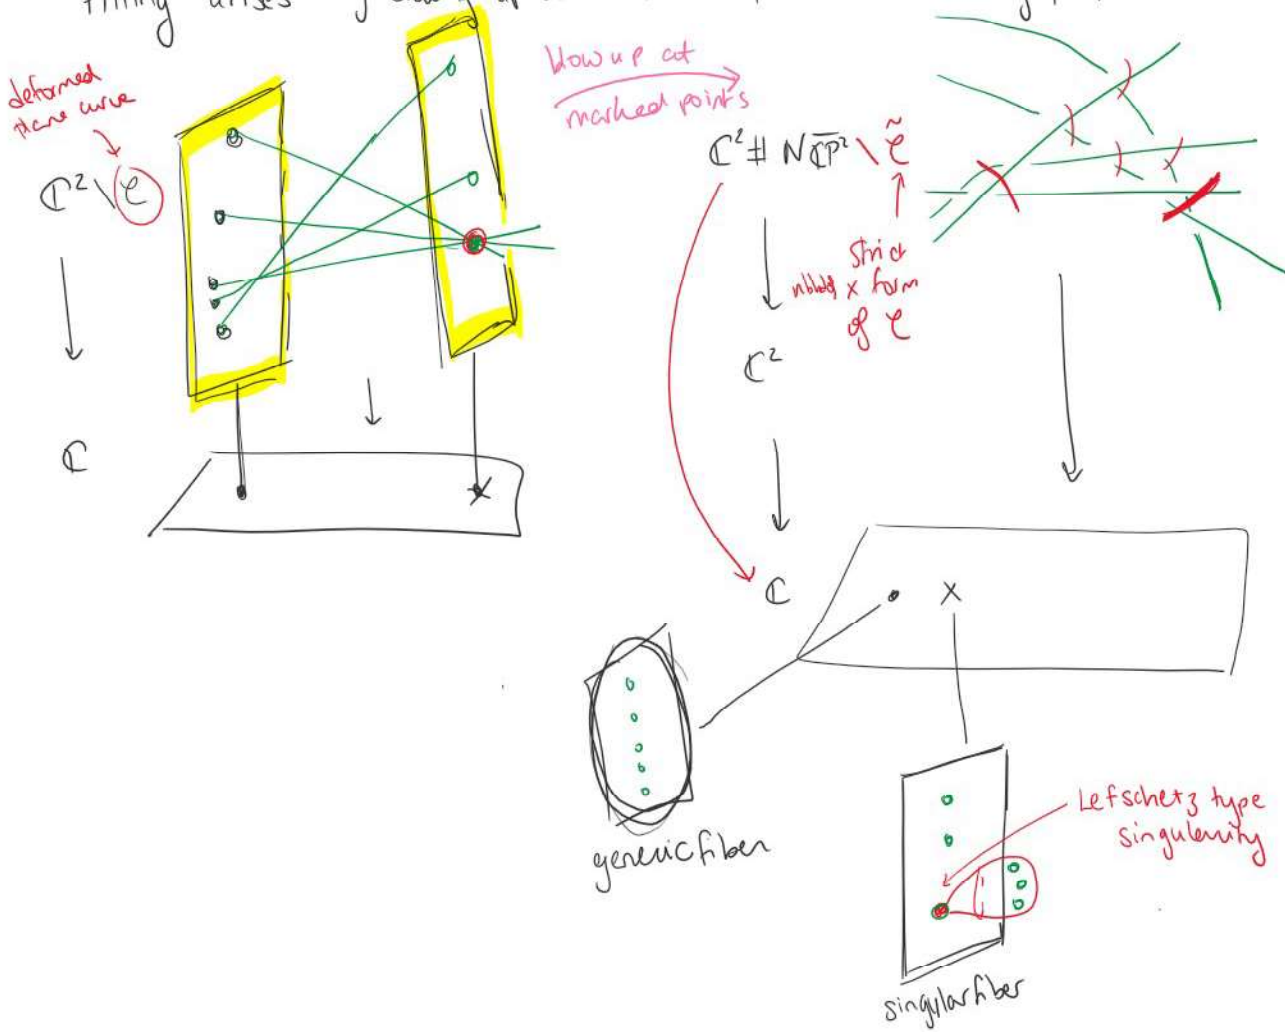 deformed
plane curve
ℂ² \ 𝒞
ℂ
blow up at
marked points
ℂ² # N \overline{ℂP}² \ 𝒞̃
strict
x form
of 𝒞
ℂ²
ℂ
x
x
generic fiber
Lefschetz type
singularity
singular fiber